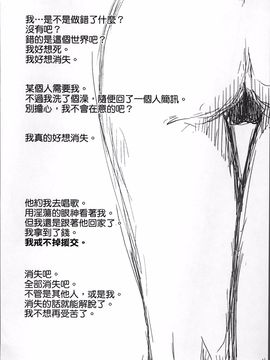 我…是不是做錯了什麼？
沒有吧？
錯的是這個世界吧？
我好想死。
我好想消失。
某個人需要我。
不過我洗了個澡，隨便回了一個人簡訊。
別擔心，我不會在意的吧？
我真的好想消失。
他約我去唱歌。
用淫蕩的眼神看著我。
但我還是跟著他回家了。
我拿到了錢。
我戒不掉援交。
消失吧。
全部消失吧。
不管是其他人，或是我。
消失的話就能解脫了。
我不想再受苦了。